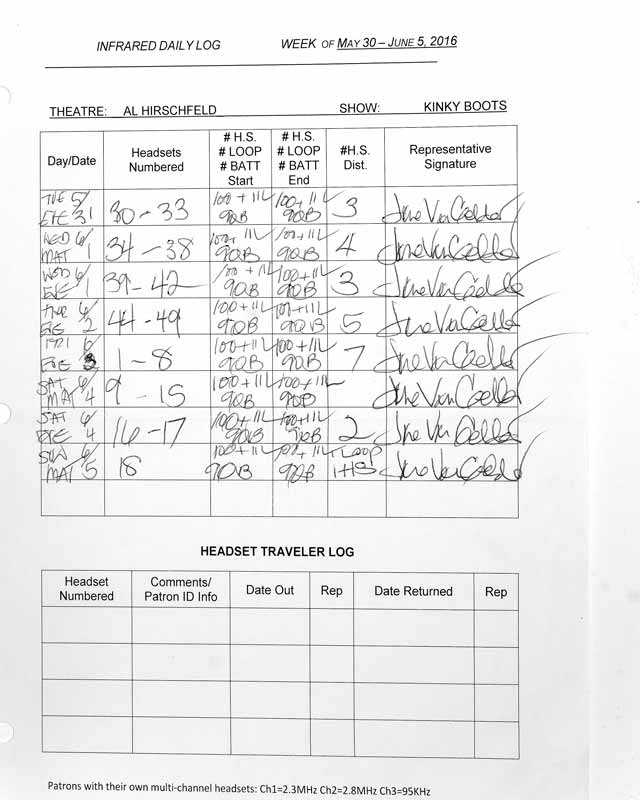 INFRARED DAILY LOG WEEK OF MAY 30 – JUNE 5, 2016
THEATRE: AL HIRSCHFELD SHOW: KINKY BOOTS
Day/Date Headsets Numbered # H.S. # LOOP # BATT Start # H.S. # LOOP # BATT End #H.S. Dist. Representative Signature
TUE 5/ EVE 31 30-33 100+11L 90B 100+11L 90B 3
WED 6/ MAT 1 34-38 100+11L 90B 100+11L 90B 4
WED 6/ EVE 1 39-42 100+11L 90B 100+11L 90B 3
THR 6/ EVE 2 44-49 100+11L 90B 100+11L 90B 5
FRI 6/ EVE 3 1-8 100+11L 90B 100+11L 90B 7
SAT 6/ MAT 4 9-15 100+11L 90B 100+11L 90B
SAT 6/ EVE 4 16-17 100+11L 90B 100+11L 90B 2
SUN 6/ MAT 5 18 100+11L 90B 100+11L 90B 1 LOOP 1HS
HEADSET TRAVELER LOG
Headset Numbered Comments/ Patron ID Info Date Out Rep Date Returned Rep
Patrons with their own multi-channel headsets: Ch1=2.3MHz Ch2=2.8MHz Ch3=95KHz